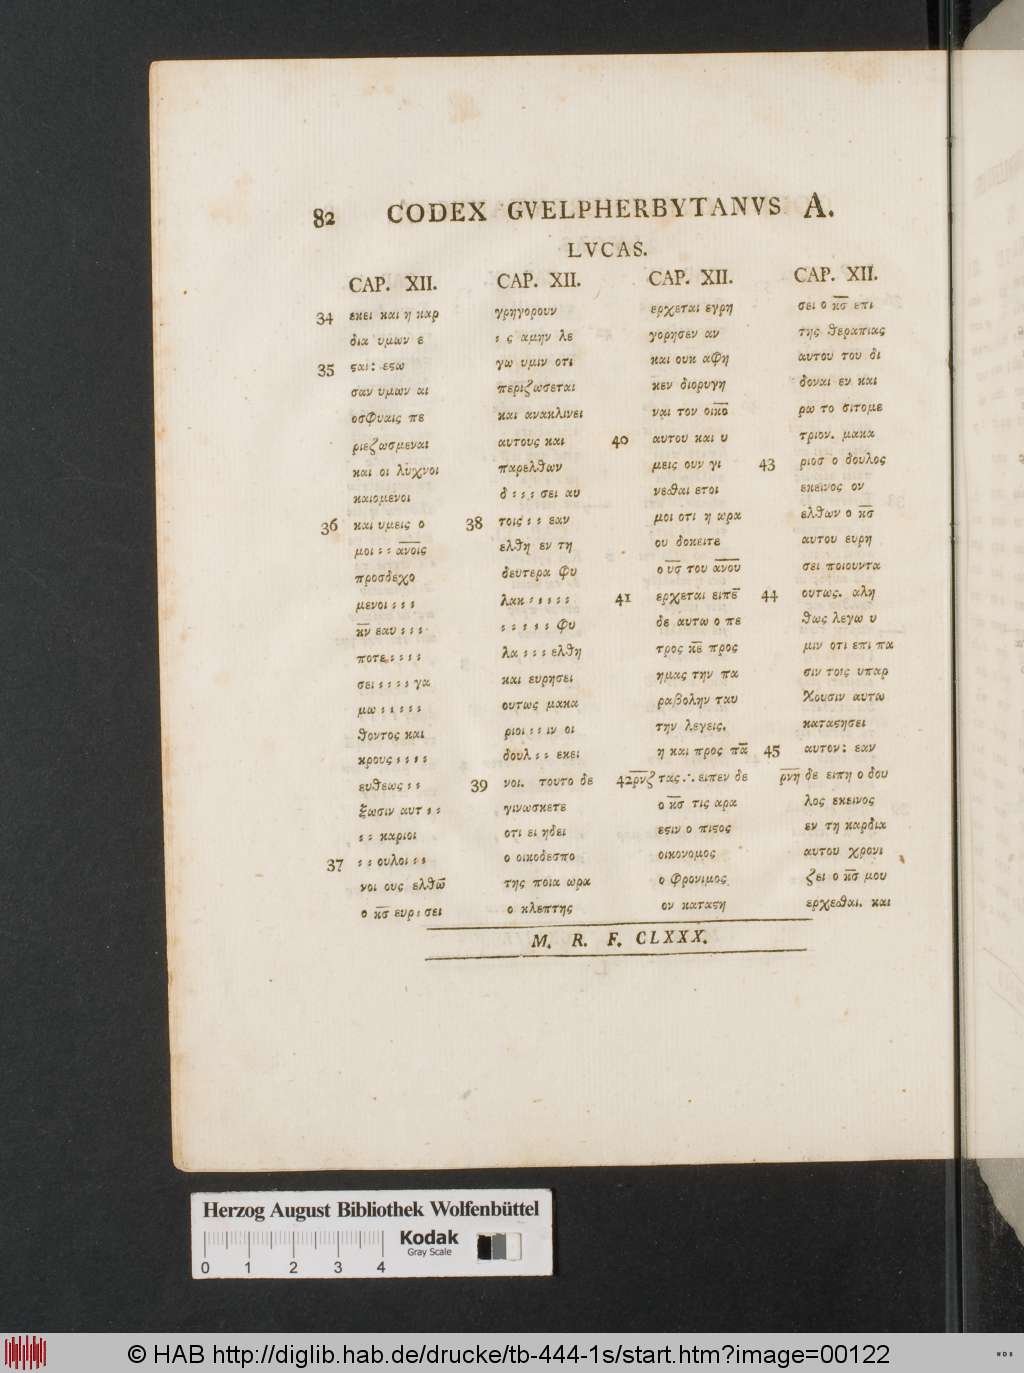 82 CODEX GVELPHERBYTANVS A.
LVCAS.
CAP. XII.
34 εκει και η καρ
δια υμων ε
35 ϛαι: εϛω
σαν υμων αι
οσφυαις πε
ριεζωσμεναι
και οι λυχνοι
καιομενοι
36 και υμεις ο
μοι : : α̅ν̅ο̅ι̅ς̅
προσδεχο
μενοι : : :
κ̅ν̅ εαυ : : :
ποτε : : : :
σει : : : : γα
μω : : : : :
θοντος και
κρους : : : :
ευθεως : :
ξωσιν αυτ : :
: : καριοι
37 : : ουλοι : :
νοι ους ελθω̅
ο κ̅σ̅ ευρ : σει
CAP. XII.
γρηγορουν
: ς αμην λε
γω υμιν οτι
περιζωσεται
και ανακλινει
αυτους και
παρελθων
δ : : : σει αυ
38 τοις : : εαν
ελθη εν τη
δευτερα φυ
λακ : : : : :
: : : : : φυ
λα : : : ελθη
και ευρησει
ουτως μακα
ριοι : : ιν οι
δουλ : : εκει
39 νοι. τουτο δε
γινωσκετε
οτι ει ηδει
ο οικοδεσπο
της ποια ωρα
ο κλεπτης
CAP. XII.
ερχεται εγρη
γορησεν αν
και ουκ αφη
κεν διορυγη
ναι τον οικο̅
40 αυτου και υ
μεις ουν γι
νεσθαι ετοι
μοι οτι η ωρα
ου δοκειτε
ο υ̅σ̅ του α̅ν̅ο̅υ̅
41 ερχεται ειπε̅
δε αυτω ο πε
τρος κ̅ε̅ προς
ημας την πα
ραβολην ταυ
την λεγεις.
η και προς πα̅
42 ρ̅ν̅ζ̅ τας ∴ ειπεν δε
ο κ̅σ̅ τις αρα
εϛιν ο πιϛος
οικονομος
ο φρονιμος
ον καταϛη
CAP. XII.
σει ο κ̅σ̅ επι
της θεραπιας
αυτου του δι
δοναι εν και
ρω το σιτομε
τριον. μακα
43 ριοσ ο δουλος
εκεινος ον
ελθων ο κ̅σ̅
αυτου ευρη
σει ποιουντα
44 ουτως. αλη
θως λεγω υ
μιν οτι επι πα
σιν τοις υπαρ
χουσιν αυτω
καταϛησει
45 αυτον: εαν
ρ̅ν̅η̅ δε ειπη ο δου
λος εκεινος
εν τη καρδια
αυτου χρονι
ζει ο κ̅σ̅ μου
ερχεσθαι. και
M. R. F. CLXXX.
Herzog August Bibliothek Wolfenbüttel
Kodak
Gray Scale
0 1 2 3 4
© HAB http://diglib.hab.de/drucke/tb-444-1s/start.htm?image=00122